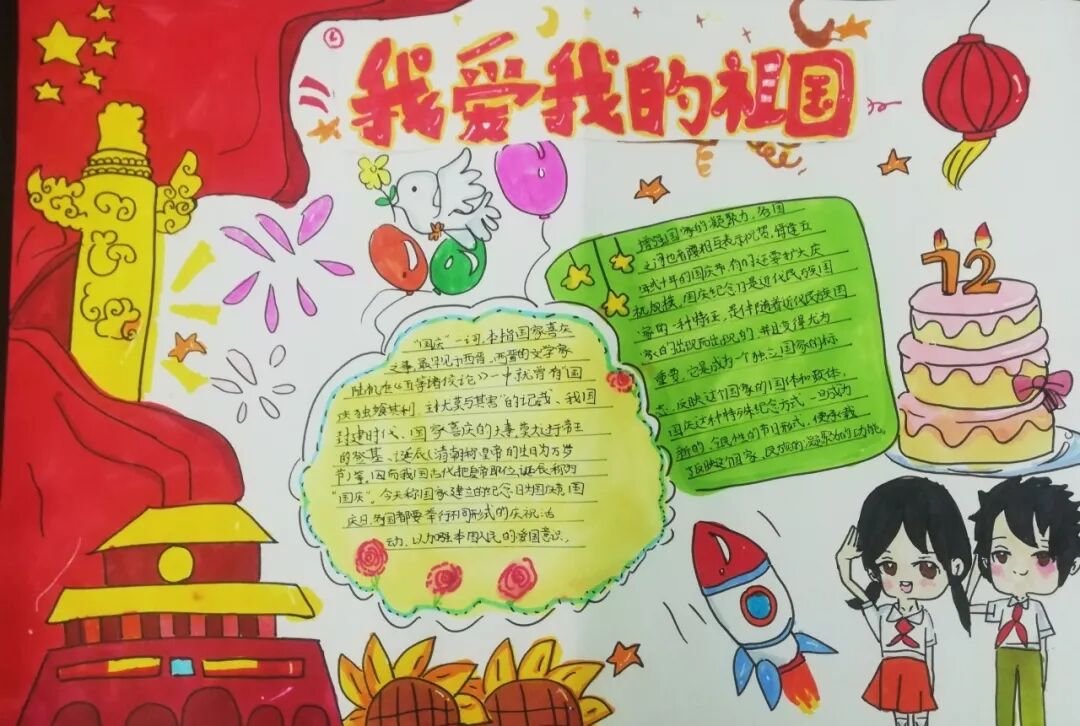 我爱我的祖国
72
“国庆”一词,本指国家喜庆
之事,最早见于西晋。西晋的文学家
陆机在《五等诸侯论》一中就曾有“国
庆独飨其利,主忧莫与其害”的记载、我国
封建时代、国家喜庆的大事,莫大过于帝王
的登基、诞辰(清朝称皇帝的生日为万岁
节)等,因而我国古代把皇帝即位、诞辰称为
“国庆”。今天称国家建立的纪念日为国庆,国
庆日,各国都要举行不同形式的庆祝活
动,以加强本国人民的爱国意识,
增强国家的凝聚力,各国
之间也都要相互表示祝贺。每逢五
年或十年的国庆节,有的还要扩大庆
祝规模。国庆纪念日是近代民族国
家的一种特征,是伴随着近代民族国
家的出现而出现的,并且变得尤为
重要。它是成为一个独立国家的标
志,反映这个国家的国体和政体。
国庆这种特殊纪念方式一旦成为
新的、全民性的节日形式,便承载
了反映这个国家、民族的凝聚力的功能。